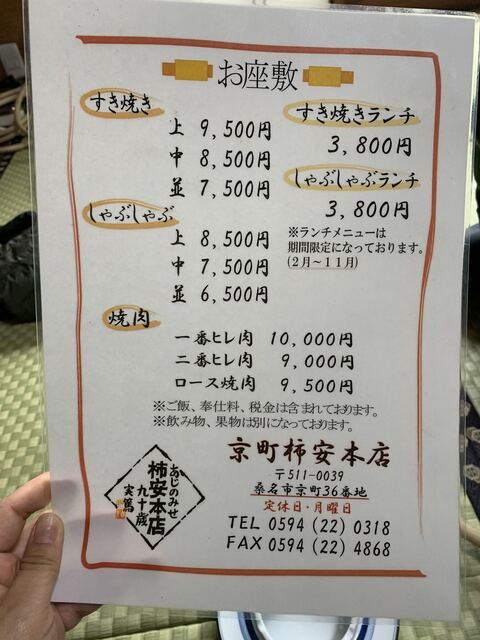 お座敷
すき焼き
上 9,500円
中 8,500円
並 7,500円
しゃぶしゃぶ
上 8,500円
中 7,500円
並 6,500円
すき焼きランチ
3,800円
しゃぶしゃぶランチ
3,800円
※ランチメニューは
期間限定になっております。
(2月～11月)
焼肉
一番ヒレ肉 10,000円
二番ヒレ肉 9,000円
ロース焼肉 9,500円
※ご飯、奉仕料、税金は含まれております。
※飲み物、果物は別になっております。
あじのみせ
柿安本店
九十歳
実篤
京町柿安本店
〒511-0039
桑名市京町36番地
定休日・月曜日
TEL 0594 (22) 0318
FAX 0594 (22) 4868